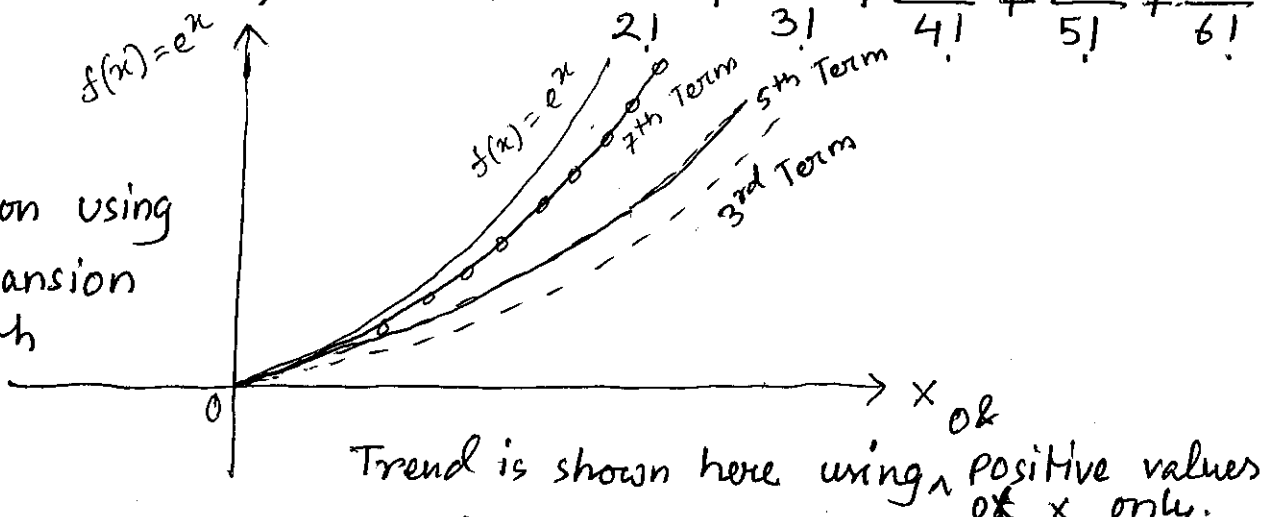 2! 3! 4! 5! 6!
f(x) = e^x
f(x) = e^x
7th Term
5th Term
3rd Term
on using
ansion
h
0
x
0 &
Trend is shown here using ^ positive values
of x only.